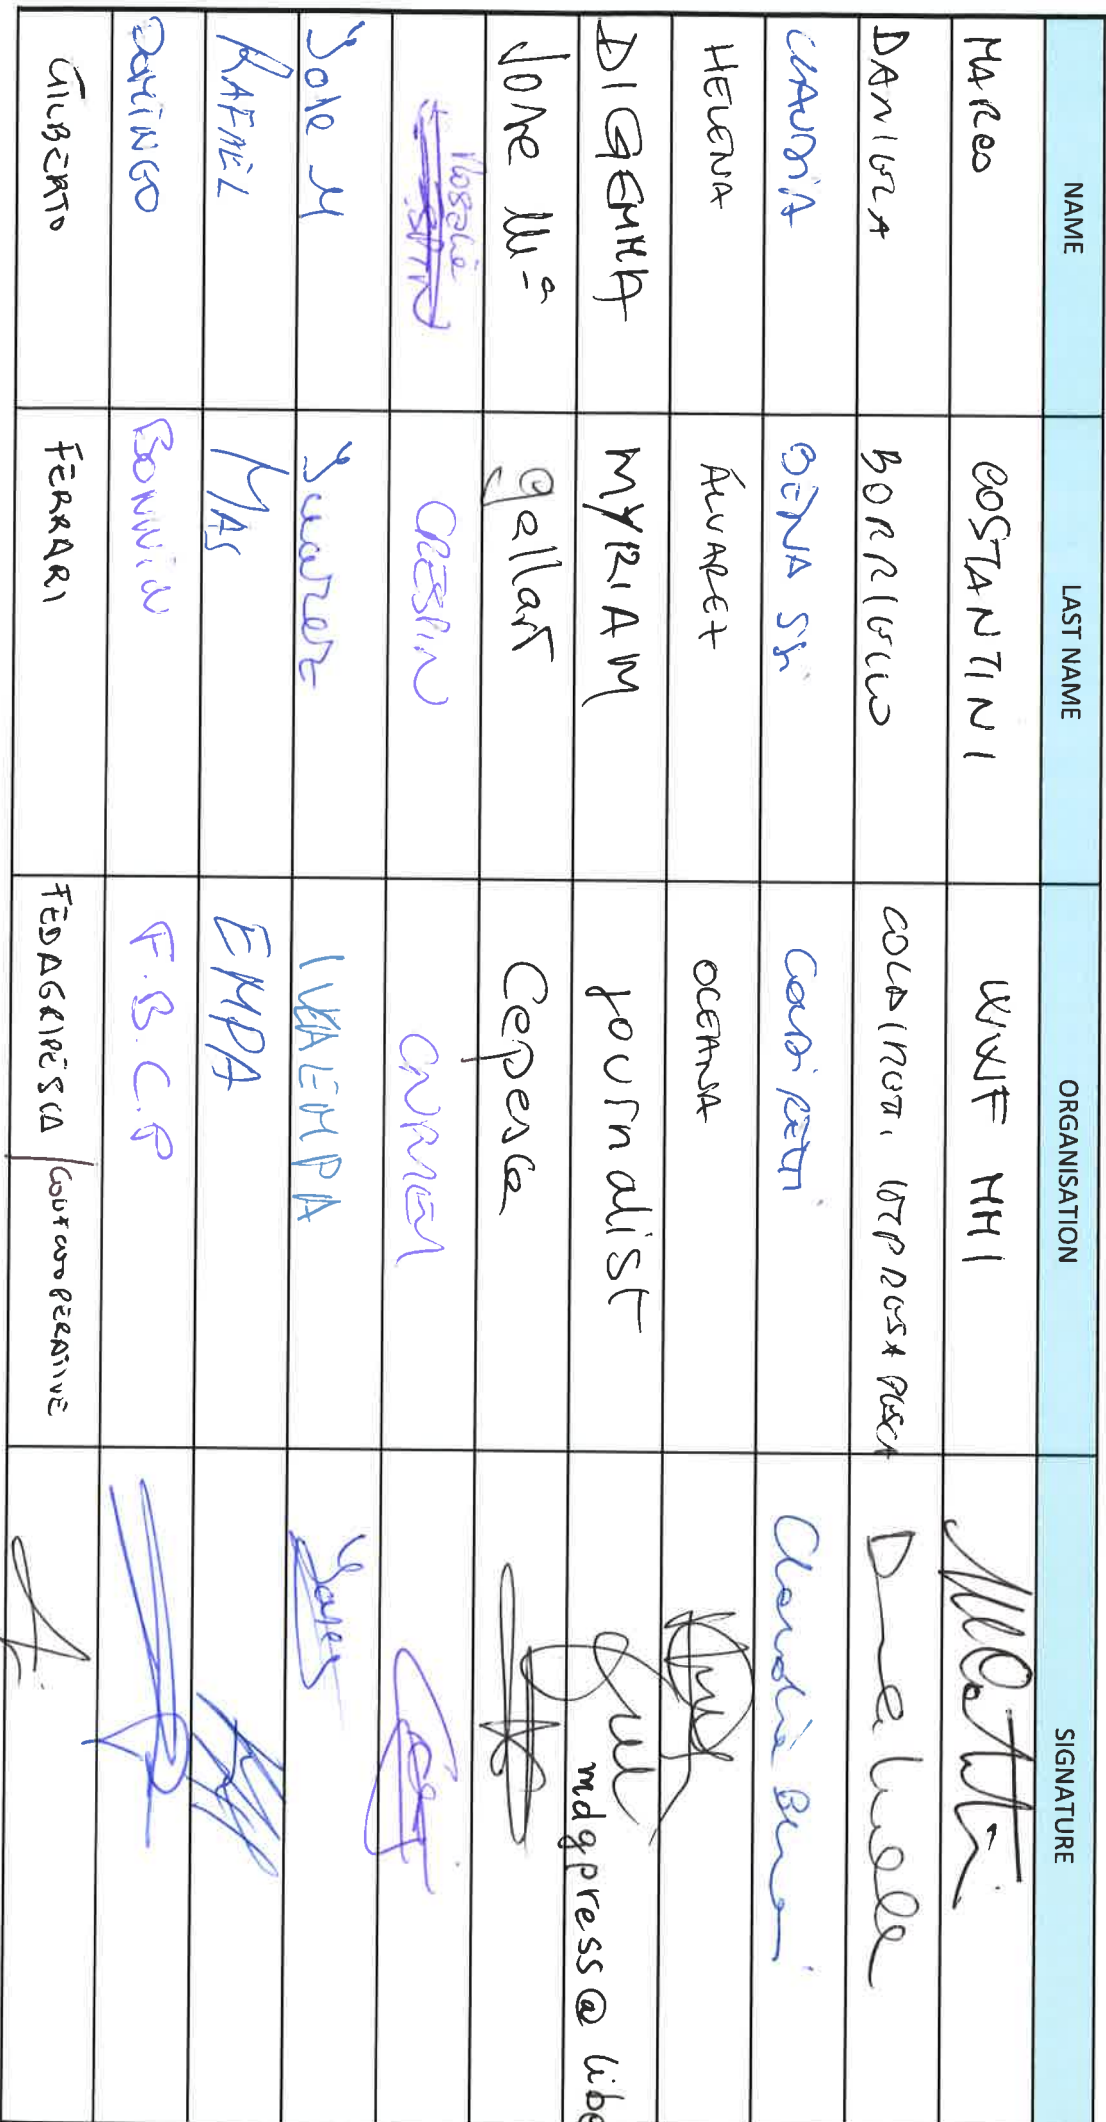 NAME LAST NAME ORGANISATION SIGNATURE
MARCO COSTANTINI WWF MMI
DANIELA BORRIELLO COLDIRETTI IMPRESA PESCA
CLAUDIA BENASSI COLDIRETTI Claudia Benassi
HELENA ÁLVAREZ OCEANA
DIGEMMA MYRIAM journalist mdgpress@libe
José Mª gallart Cepesca
Rosalie CRESPIN CNPMEM
Jose M Suarez IVEAEMPA
RAFAEL MAS EMPA
DOMINGO BONNIN F.B.C.P
GILBERTO FERRARI FEDAGRIPESCA/CONFCOOPERATIVE